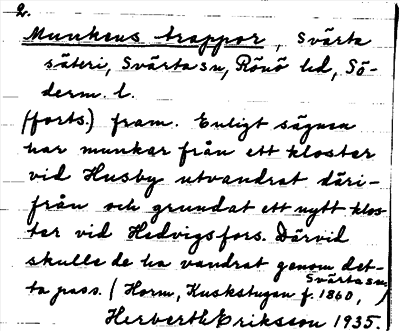 2.
Munkens trappor, Svärta
säteri, Svärta sn, Rönö hd, Sö-
derm. l.
(forts.) fram. Enligt sägnen
har munkar från ett kloster
vid Husby utvandrat däri-
från och grundat ett nytt klos-
ter vid Hedvigsfors. Därvid
skulle de ha vandrat genom det-
ta pass. (Horm, Kuskstugan f. 1860, Svärta sn,)
Herbert Eriksson 1935.